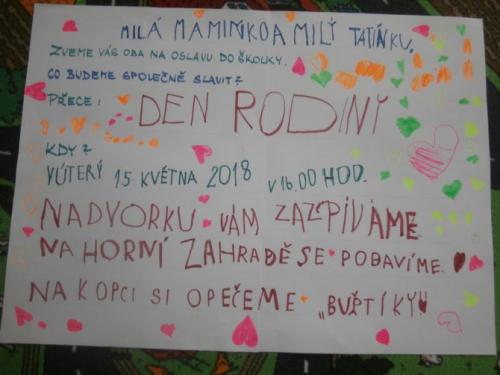 MILÁ MAMINKO A MILÝ TATÍNKU,
ZVEME VÁS OBA NA OSLAVU DO ŠKOLKY.
CO BUDEME SPOLEČNĚ SLAVIT?
PŘECE: DEN RODINY
KDY?
VÚTERÝ 15. KVĚTNA 2018 V 16.00 HOD.
NADVORKU VÁM ZAZPÍVÁME.
NA HORNÍ ZAHRADĚ SE POBAVÍME.
NA KOPCI SI OPEČEME „BUŘTÍKY"